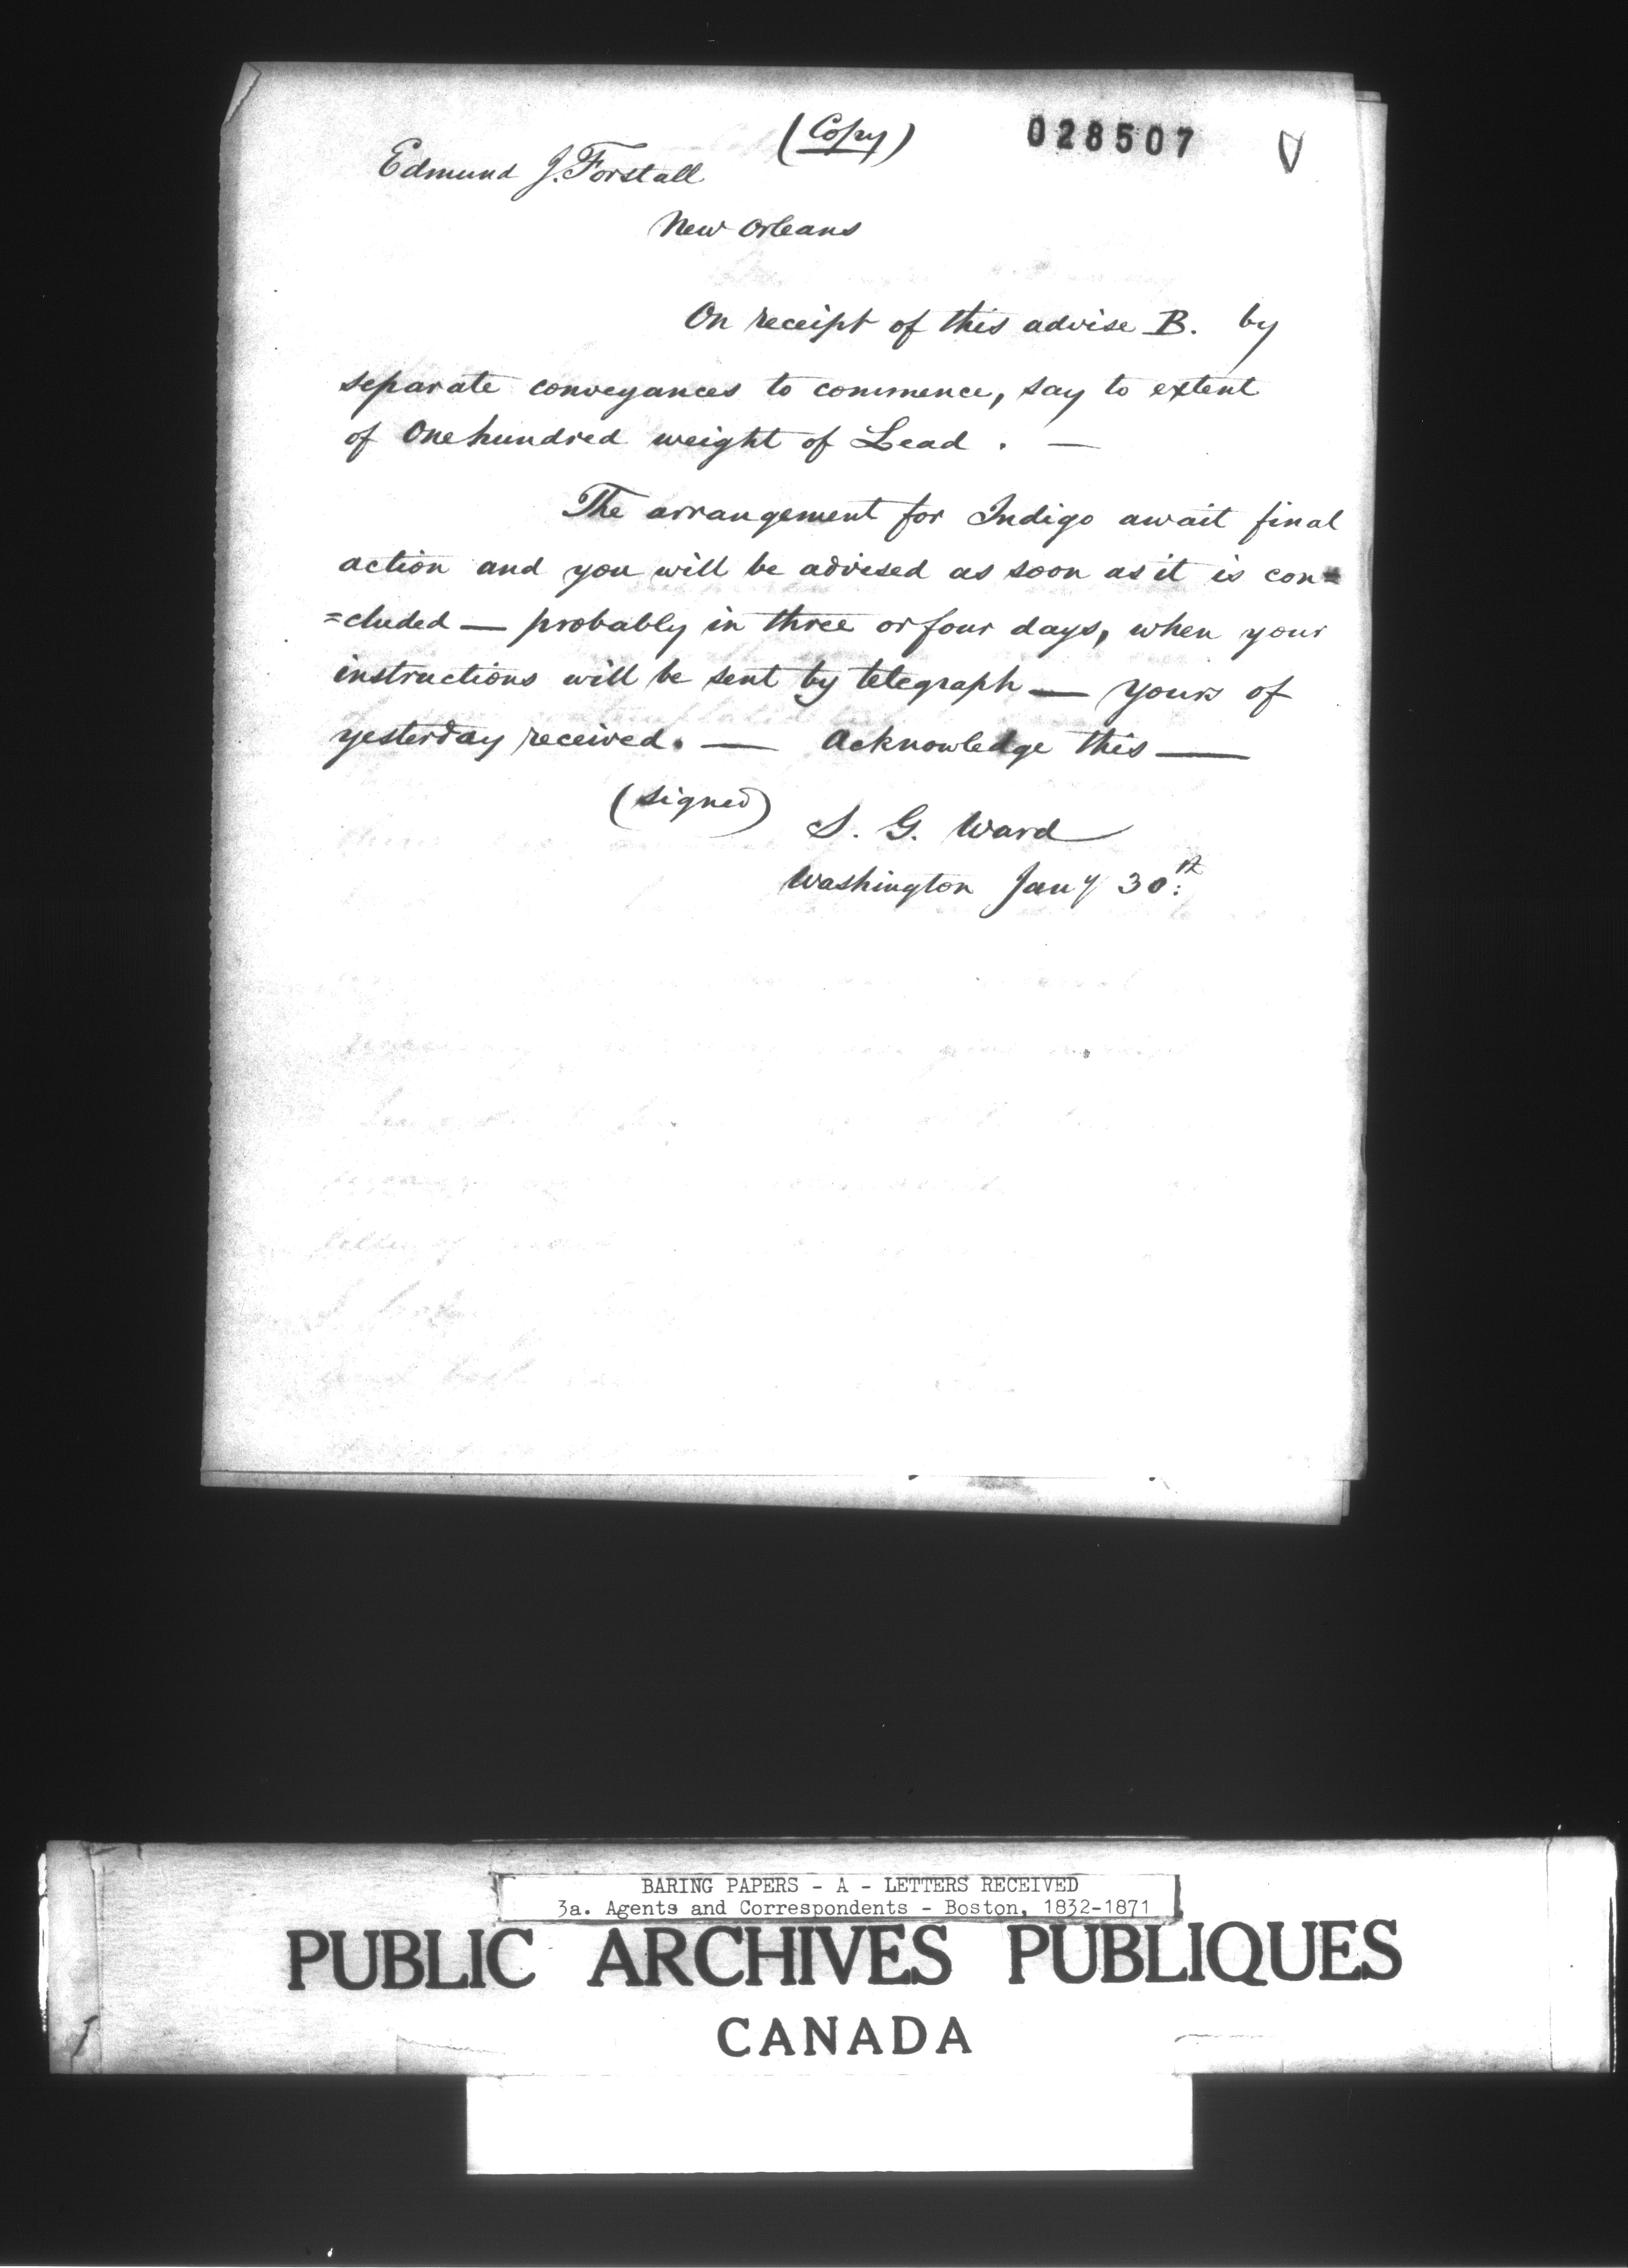 (Copy)
028507
Edmund J. Forstall
New Orleans
On receipt of this advise B. by
separate conveyances to commence, say to extent
of One hundred weight of Lead. —
The arrangement for Indigo await final
action and you will be advised as soon as it is con=
=cluded — probably in three or four days, when your
instructions will be sent by telegraph — yours of
yesterday received. — Acknowledge this —
(signed)
S. G. Ward
Washington Jany 30th
BARING PAPERS - A - LETTERS RECEIVED
3a. Agents and Correspondents - Boston, 1832-1871
PUBLIC ARCHIVES PUBLIQUES
CANADA